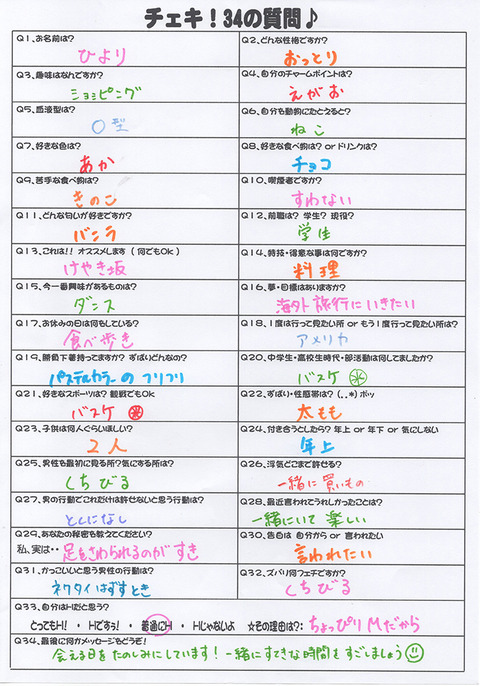 チェキ！34の質問♪
Q1、お名前は？
ひより
Q2、どんな性格ですか？
おっとり
Q3、趣味はなんですか？
ショッピング
Q4、自分のチャームポイントは？
えがお
Q5、血液型は？
O型
Q6、自分を動物にたとえると？
ねこ
Q7、好きな色は？
あか
Q8、好きな食べ物は？ or ドリンクは？
チョコ
Q9、苦手な食べ物は？
きのこ
Q10、喫煙者ですか？
すわない
Q11、どんな匂いが好きですか？
バニラ
Q12、前職は？ 学生？ 現役？
学生
Q13、これは!! オススメします ( 何でもOk )
けやき坂
Q14、特技・得意な事は何ですか？
料理
Q15、今一番興味があるものは？
ダンス
Q16、夢・目標はありますか？
海外旅行にいきたい
Q17、お休みの日は何をしている？
食べ歩き
Q18、1度は行って見たい所 or もう1度行って見たい所は？
アメリカ
Q19、勝負下着持ってますか？ ずばりどんなの？
パステルカラーのフリフリ
Q20、中学生・高校生時代・部活動は何してましたか？
バスケ
Q21、好きなスポーツは？ 観戦でもOK
バスケ
Q22、ずばり・性感帯は？ (．．*) ポッ
太もも
Q23、子供は何人ぐらいほしい？
2人
Q24、付き合うとしたら？ 年上 or 年下 or 気にしない
年上
Q25、男性を最初に見る所？気にする所は？
くちびる
Q26、浮気どこまで許せる？
一緒に買いもの
Q27、男の行動でこれだけは許せないと思う行動は？
とくになし
Q28、最近言われてうれしかったことは？
一緒にいて楽しい
Q29、あなたの秘密を教えてください？
私、実は・・足をさわられるのがすき
Q30、告白は 自分から or 言われたい
言われたい
Q31、かっこいいと思う男性の行動は？
ネクタイはずすとき
Q32、ズバリ何フェチですか？
くちびる
Q33、自分はHだと思う？
とってもH！ ・ Hですぅ！ ・ 普通にH ・ Hじゃないよ ☆その理由は？：ちょっぴりMだから
Q34、最後に何かメッセージをどうぞ！
会える日をたのしみにしています！一緒にすてきな時間をすごしましょう